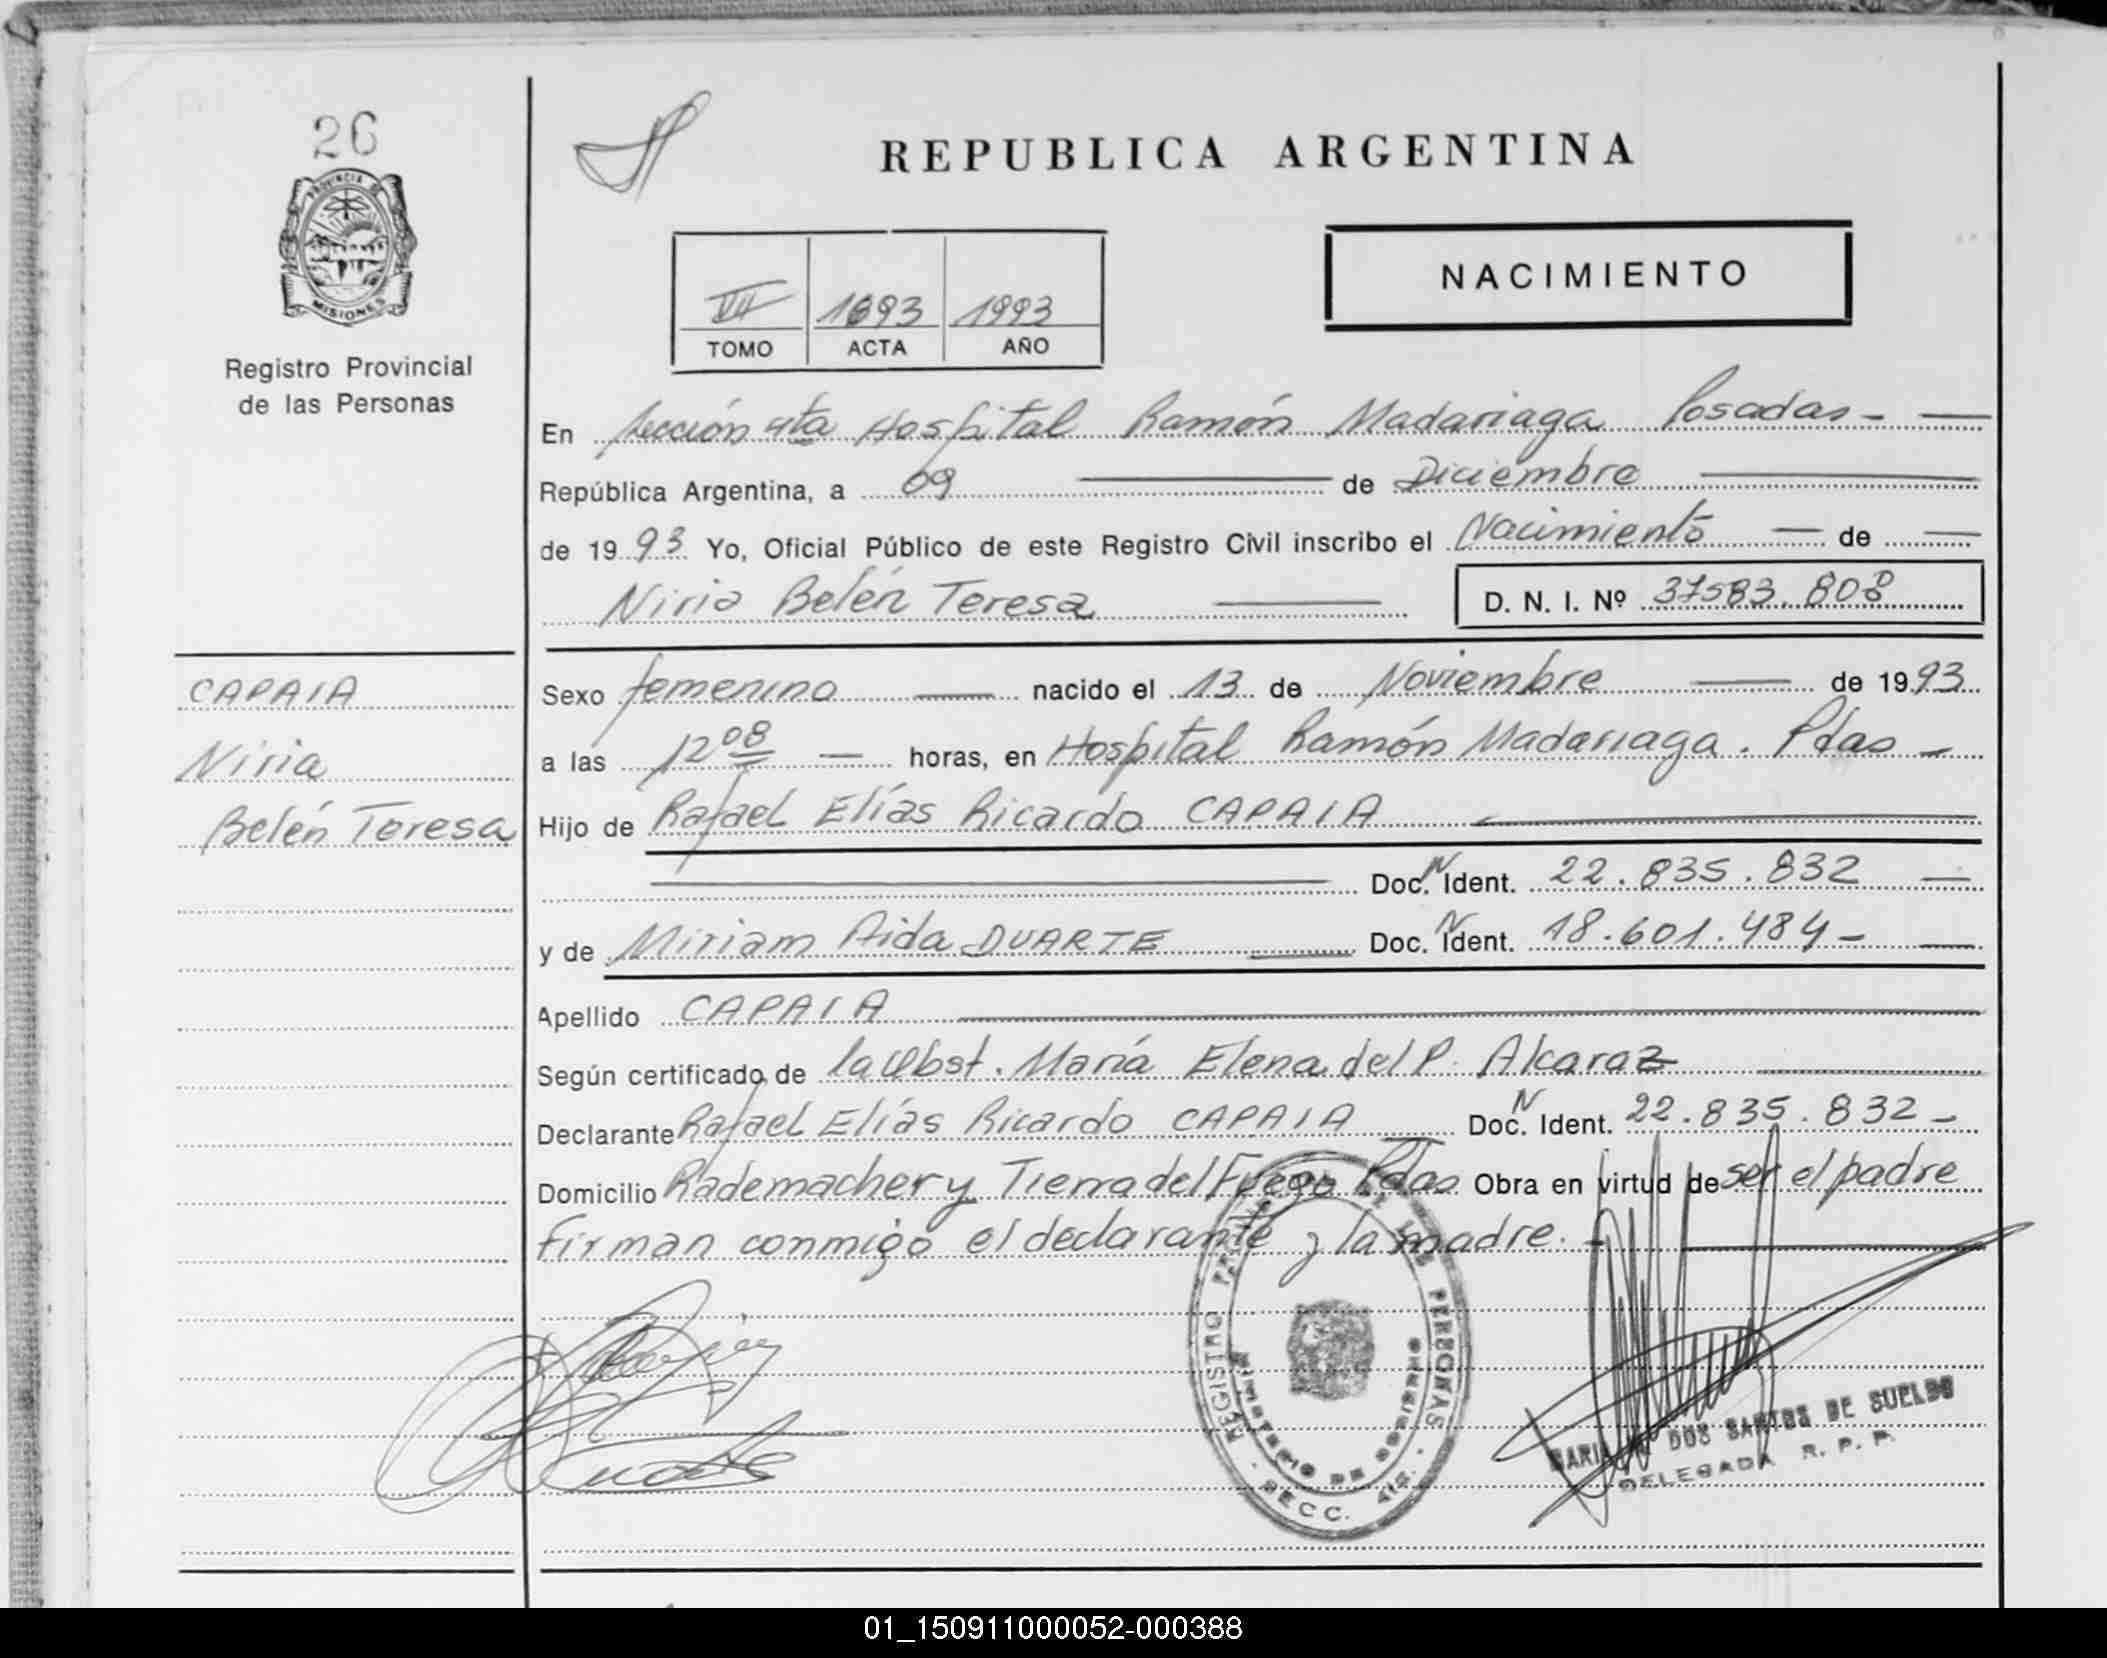 26
PROVINCIA DE
MISIONES
Registro Provincial
de las Personas
REPUBLICA ARGENTINA
NACIMIENTO
VII 1693 1993
TOMO ACTA AÑO
En Sección 4ta Hospital Ramón Madariaga Posadas -
República Argentina, a 09 de Diciembre
de 1993 Yo, Oficial Público de este Registro Civil inscribo el Nacimiento de
Niria Belén Teresa
D. N. I. Nº 37583.808
CAPAIA
Niria
Belén Teresa
Sexo femenino nacido el 13 de Noviembre de 1993
a las 12 08 horas, en Hospital Ramón Madariaga. Pdas -
Hijo de Rafael Elías Ricardo CAPAIA
Doc. N Ident. 22.835.832
y de Miriam Aida DUARTE Doc. N Ident. 18.601.484 -
Apellido CAPAIA
Según certificado de la Obst. María Elena del P. Alcaraz
Declarante Rafael Elías Ricardo CAPAIA Doc. N Ident. 22.835.832 -
Domicilio Rademacher y Tierra del Fuego Pdas Obra en virtud de ser el padre
firman conmigo el declarante y la madre.
REGISTRO PROVINCIAL DE LAS PERSONAS
MINISTERIO DE GOBIERNO
SECC. 4ta.
MARIA DOS SANTOS DE SUELDO
DELEGADA R. P. P.
01_150911000052-000388